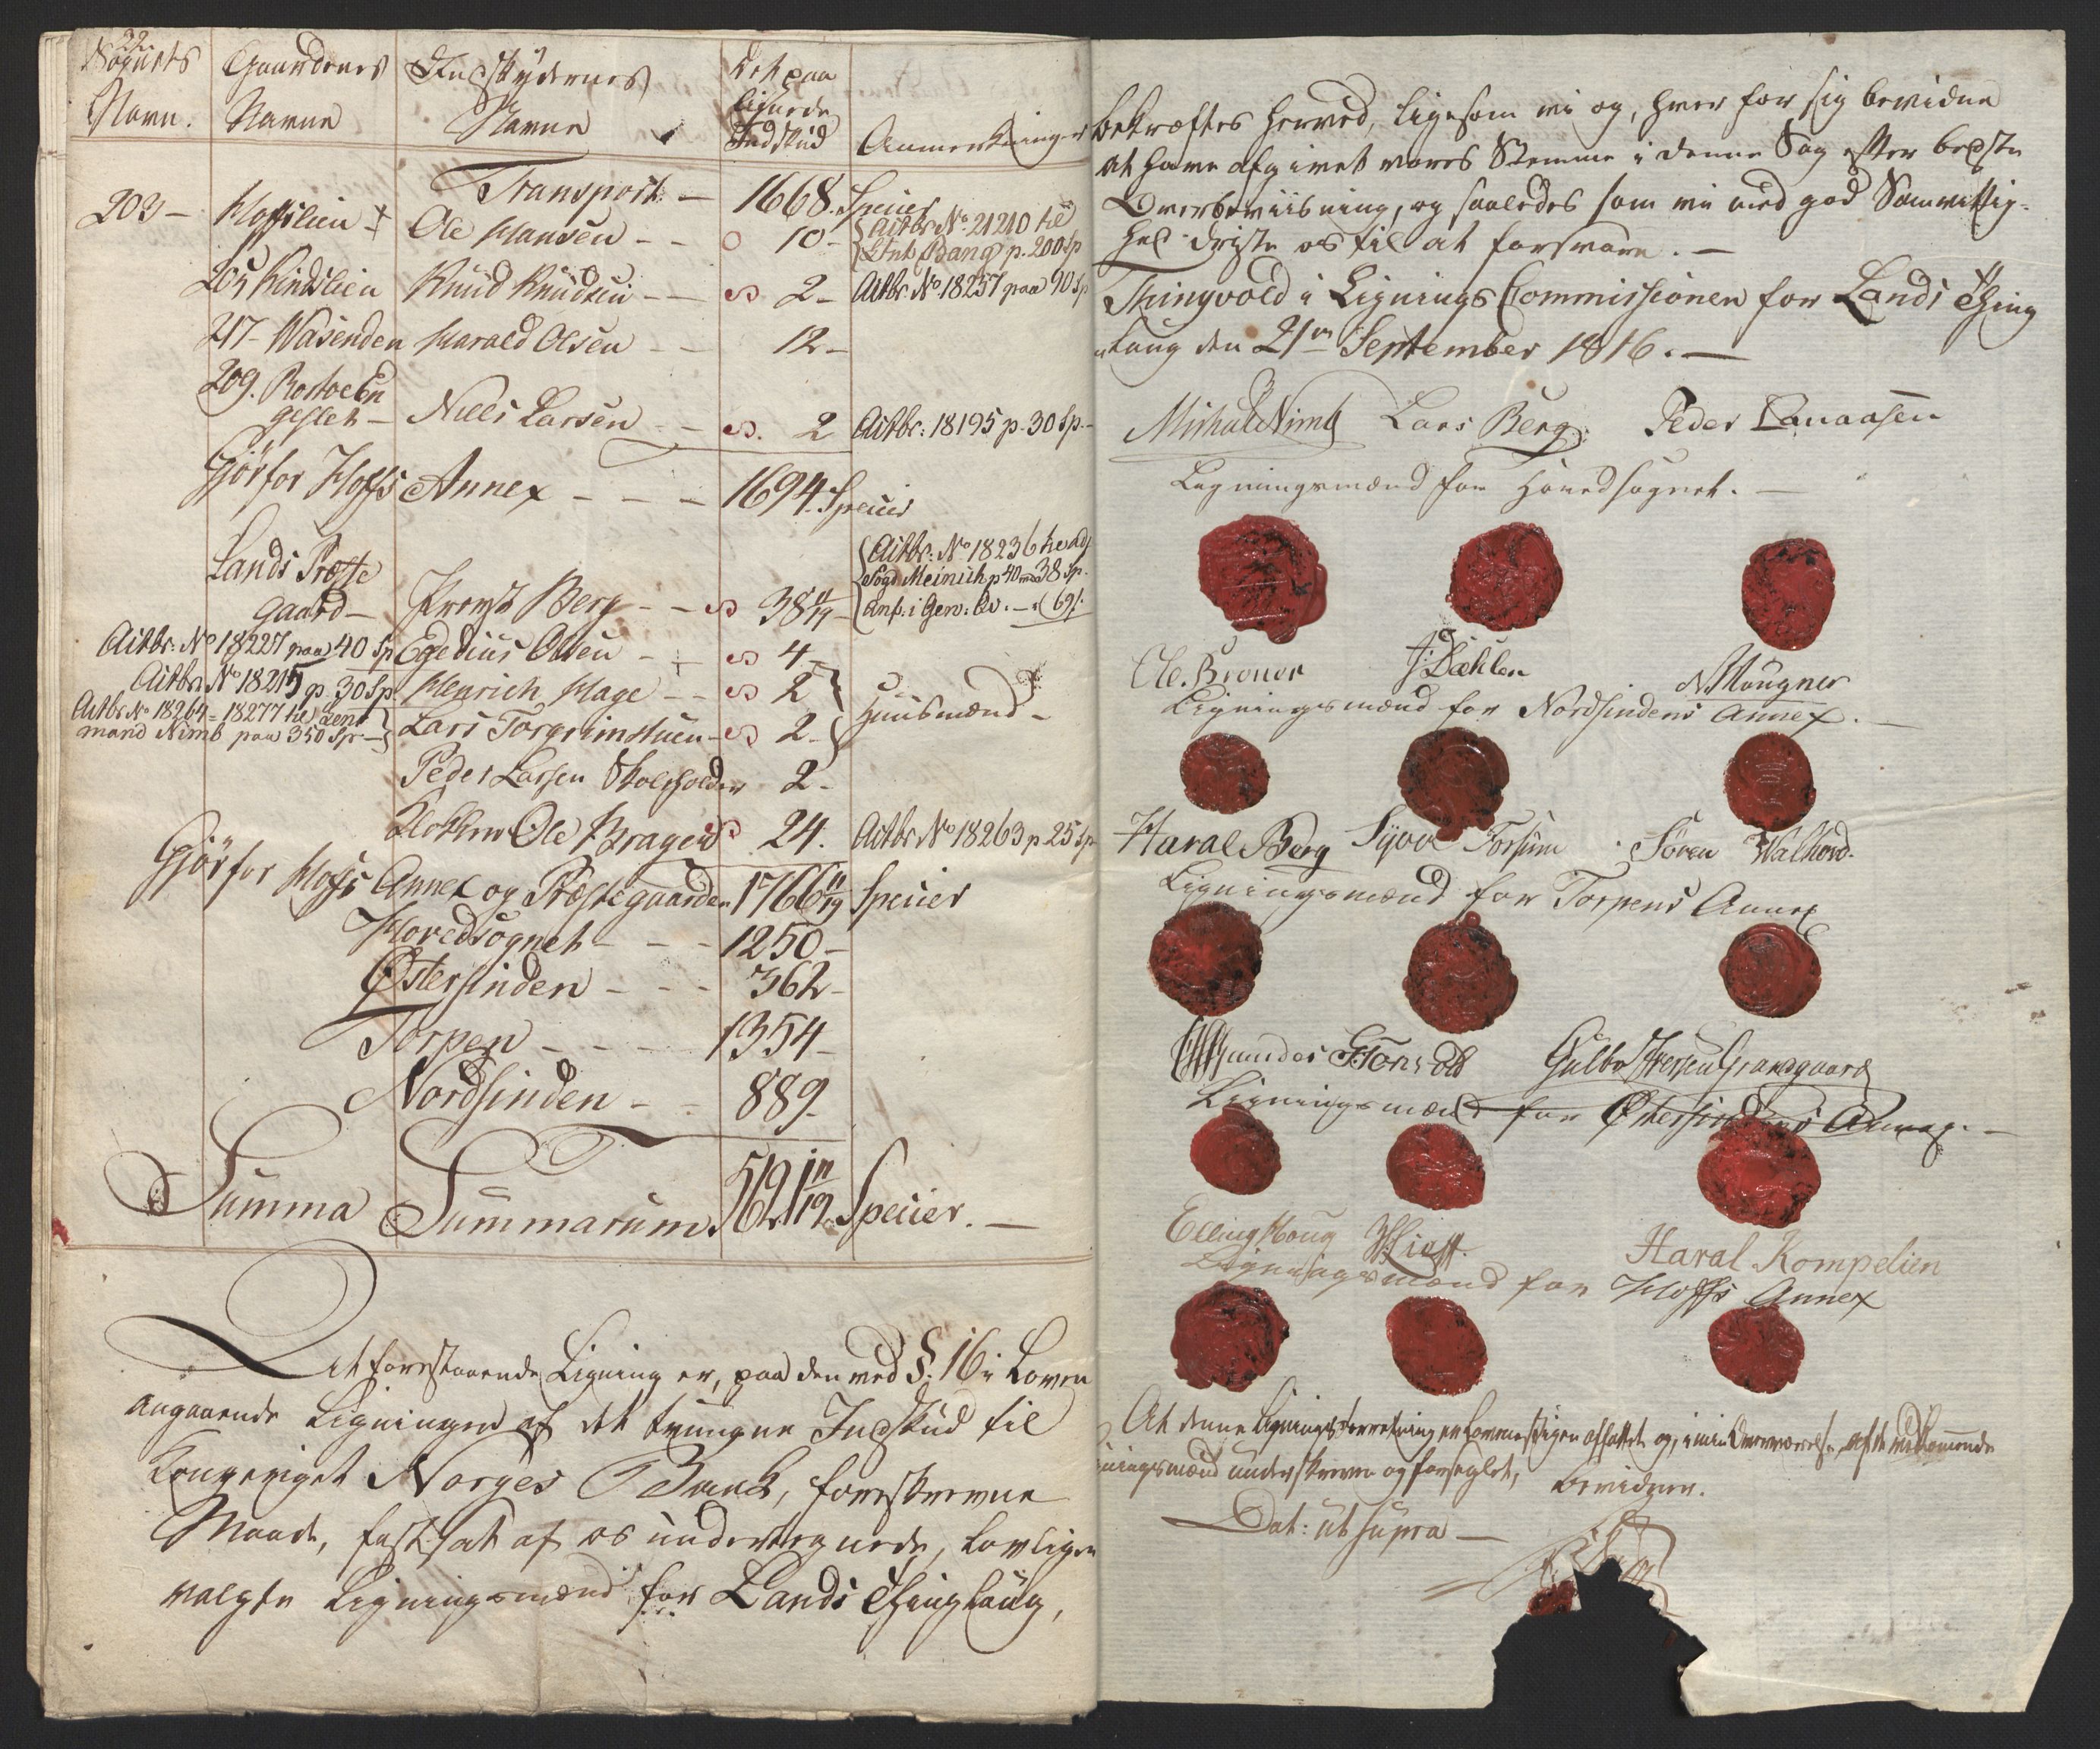 22.
Sognets Gaardenes Indskydernes Det paa
Navn. Navne Navne lignede Anmerkninger
Indskud
Transport — 1668. Specier
203 — Hoffslien + Ole Hansen — 10 — Actbr No 21210 til
Lnt Bang p. 200 Sp
205 Lindslien Knud Knudsen — 2 — Actbr No 18257 paa 90 Sp
217 — Wasenden Harald Olsen — 12 —
209. 
geslet — Niels Larsen — 2 Actbr: 18195 p. 30 Sp.
Gjør for Hoffs Annex — 1694. Specier
Lands Præste Actbr: No 18236
gaard — Provst Berg — 38 11/19 — Sogd Meinich p 40 38 Sp.
Actbr: No 18227 paa 40 Sp Egedius Olsen — 4
Actbr No 18215 p. 30 Sp. Henrich Hage — 2 Huusmænd —
Actbr No 18264 = 18277 til Lent
mand Nimb paa 350 Sp. — Lars Torgrimstuen — 2 —
Peder Larsen Skoleholder 2 —
Klokker Ole Brager 24. Actbr No 18263 p 25 Sp
Gjør for Hoffs Annex og Præstegaarden 1766 11/19 Specier
Hovedsognet — 1250 —
Østersinden — 362 —
Torpen — 1354 —
Nordsinden — 889.
Summa Summarum 5621 11/19 Specier. —
At forestaaende Ligning er, paa den ved §. 16 i Loven
angaaende Ligningen af det tvungne Indskud til
Kongeriget Norges Bank, foreskrevne
Maade, fastsat af os undertegnede, lovligen
valgte Ligningsmænd for Lands Thinglaug,
bekræftes herved, ligesom vi og, hver for sig bevidne
at have afgivet vores Stemme i denne Sag efter bedste
Overbeviisning, og saaledes som vi med god Samvittig-
hed driste os til at forsvare. —
Thingvold i Lignings Commissionen for Lands Thing
laug den 21de September 1816. —
Michael Nimb Lars Berg Peder Lanaasen
Ligningsmænd for Hovedsognet. —
Ole. Broner J: Dæhlen N Hougner
Ligningsmænd for Nordsindens Annex. —
Haral Berg Syver Forsum Søren Walhovd.
Ligningsmænd for Torpens Annex
Gulbr Iversen Gransgaard
Ligningsmænd for Østersindens Annex. —
Elling Houg Haral Kompelien
Ligningsmænd for Hoffs Annex
At denne Lignings Forretning er lovmæssigen affattet og, i min Overværelse, af de vedkommende
ningsmænd underskreven og forseglet, bevidner.
Dat: ut supra —